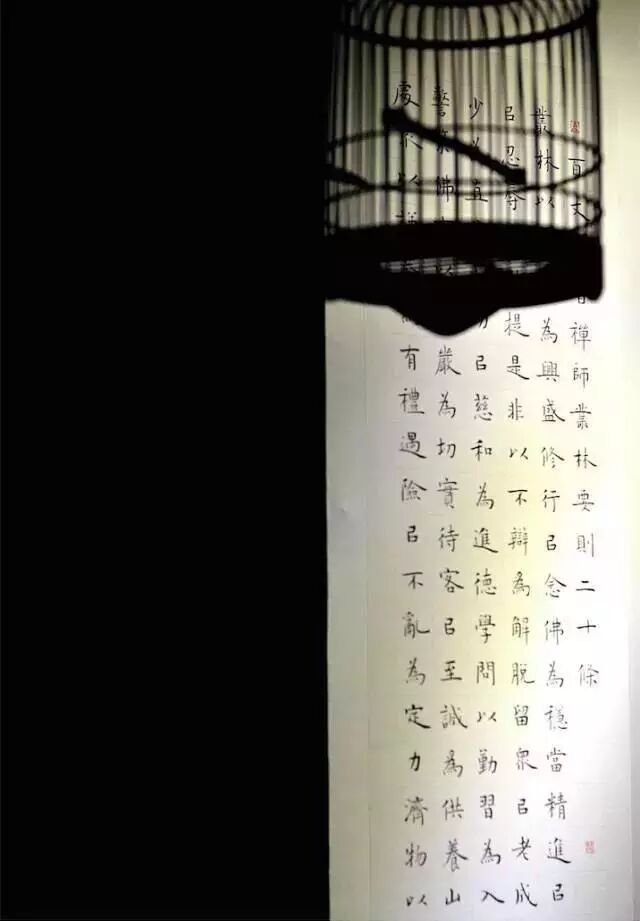 百丈禪師叢林要則二十條
叢林以為興盛修行㠯念佛為穩當精進㠯
㠯忍辱提是非以不辯為解脫留衆㠯老成
少以直㠯慈和為進德學問以勤習為入
嚴為切實待客㠯至誠為供養山
處以為有禮遇險㠯不亂為定力濟物以